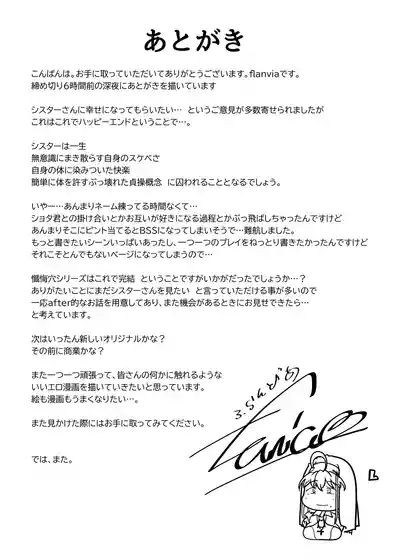 あとがき
こんばんは。お手に取っていただいてありがとうございます。flanviaです。
締め切り6時間前の深夜にあとがきを描いています
シスターさんに幸せになってもらいたい… というご意見が多数寄せられましたが
これはこれでハッピーエンドということで…。
シスターは一生
無意識にまき散らす自身のスケベさ
自身の体に染みついた快楽
簡単に体を許すぶっ壊れた貞操概念 に囚われることとなるでしょう。
いやー…あんまりネーム練ってる時間なくて…
ショタ君との掛け合いとかお互いが好きになる過程とかぶっ飛ばしちゃったんですけど
あんまりそこにピント当てるとBSSになってしまいそうで…難航しました。
もっと書きたいシーンいっぱいあったし、一つ一つのプレイをねっとり書きたかったんですけど
それこそとんでもないページになってしまうので…
懺悔穴シリーズはこれで完結 ということですがいかがだったでしょうか…?
ありがたいことにまだシスターさんを見たい と言っていただける事が多いので
一応after的なお話を用意してあり、また機会があるときにお見せできたら…
と考えています。
次はいったん新しいオリジナルかな?
その前に商業かな?
また一つ一つ頑張って、皆さんの何かに触れるような
いいエロ漫画を描いていきたいと思っています。
絵も漫画もうまくなりたい…。
また見かけた際にはお手に取ってみてください。
では、また。